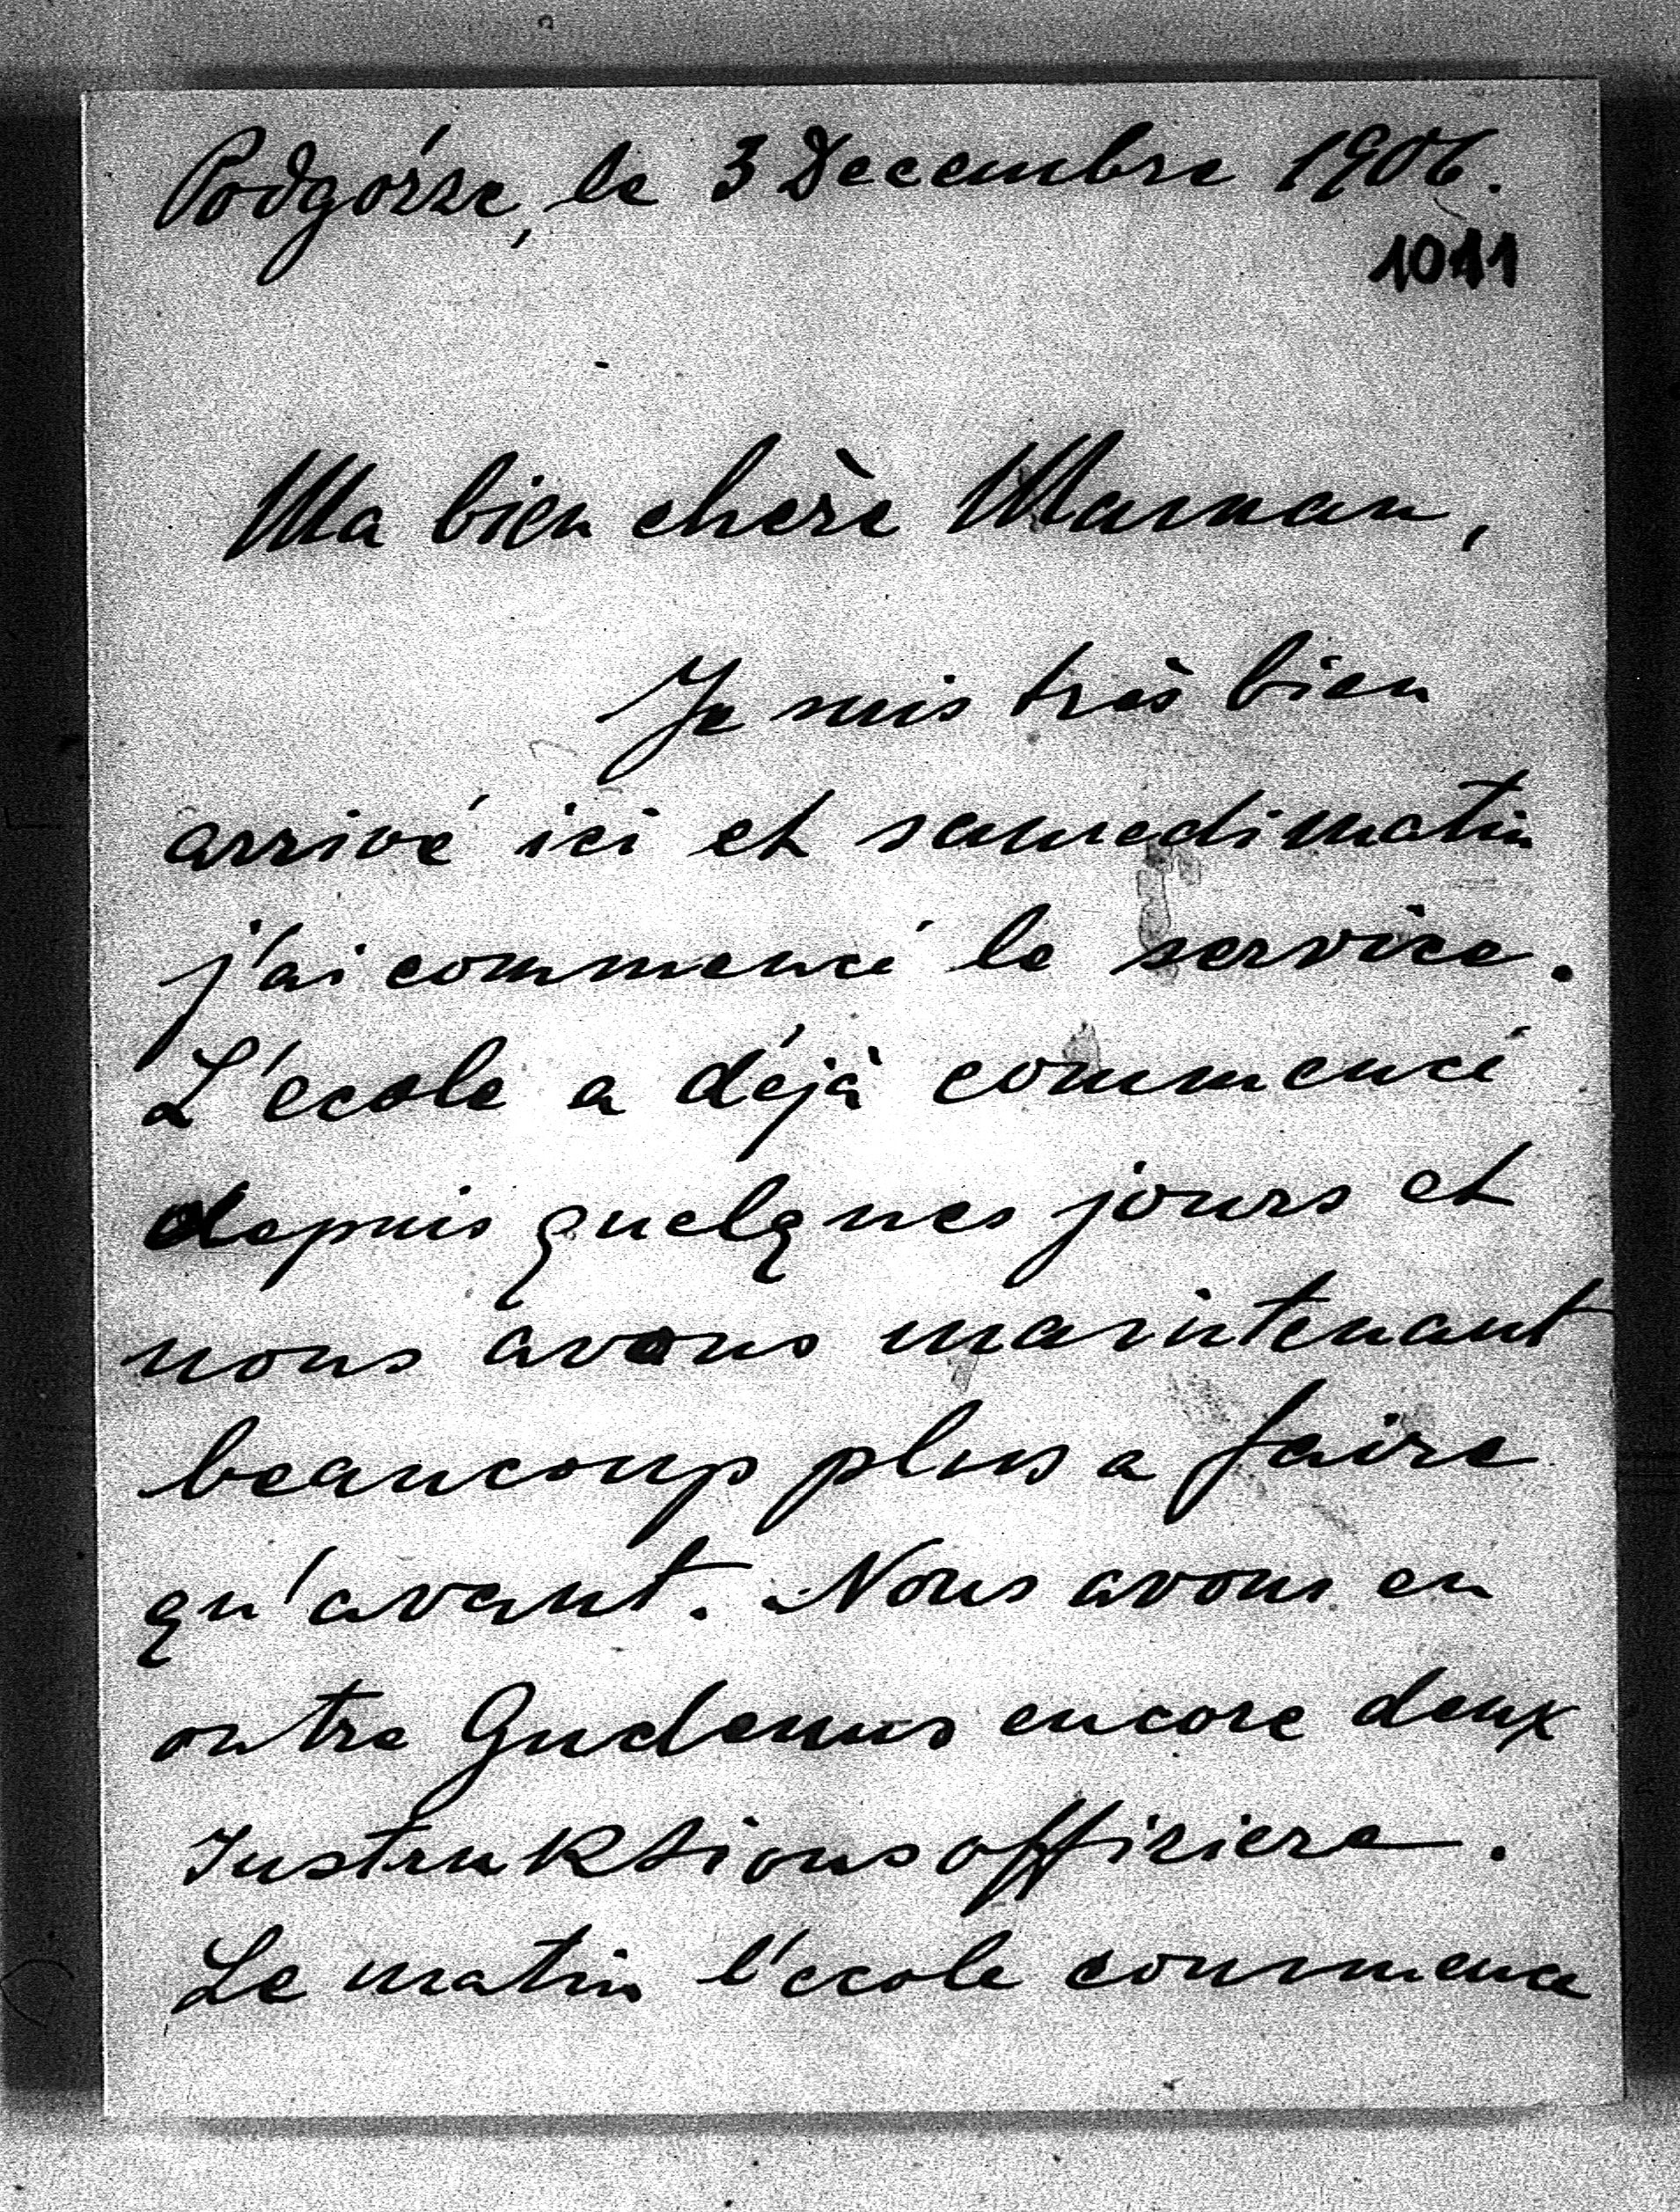 Podgórze, le 3 Decembre 1906.
1011
Ma bien chère Maman,
Je suis très bien
arrivé ici et samedi matin
j'ai commencé le service.
L'école a déjà commencé
depuis quelques jours et
nous avons maintenant
beaucoup plus a faire
qu'avant. Nous avons en
outre Gudenus encore deux
Instruktionsoffiziere.
Le matin l'école commence